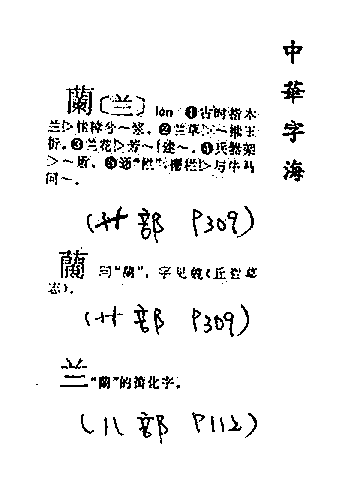 中華字海
蘭〔兰〕lán ❶古时指木
兰▷桂樟兮～桨。❷兰草▷～摧玉
折。❸兰花▷芳～｜建～。❹兵器架
▷～所。❺通“栏”，栅栏▷与牛马
同～。
(艹部 P309)
同“蘭”。字见魏《丘哲墓
志》。
(艹部 P309)
兰 “蘭”的简化字。
(八部 P112)